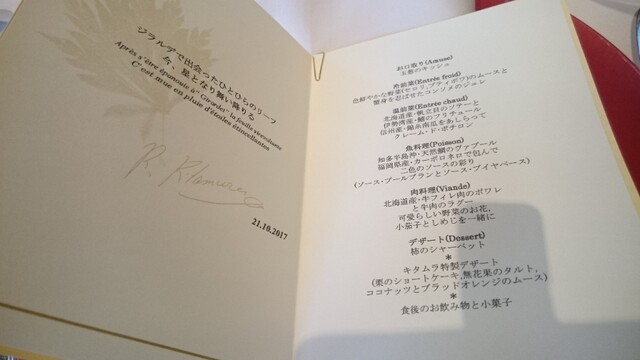 ジラルデで出会ったひとひらのリーフ
今、星となり舞い降りる
Après s'être épanouie à "Girardet, la feuille virevoltante
C'est mue en pluie d'étoiles étincellantes
21.10.2017
お口取り(Amuse)
玉葱のキッシュ
冷前菜(Entrée froid)
色鮮やかな野菜(セロリ、プティポワ)のムースと
蟹身を忍ばせたコンソメのジュレ
温前菜(Entrée chaud)
北海道産・帆立貝のソテーと
伊勢湾産・鱚のフリチュール
信州産・錦糸南瓜をあしらって
クレーム・ド・ポチロン
魚料理(Poisson)
知多半島沖・天然鯛のヴァプール
福岡県産・カーボロネロで包んで
二色のソースの彩り
(ソース・ブールブランとソース・ブイヤベース)
肉料理(Viande)
北海道産・牛フィレ肉のポワレ
と牛肉のラグー
可愛らしい野菜のお花、
小茄子としめじを一緒に
デザート(Dessert)
柿のシャーベット
*
キタムラ特製デザート
(栗のショートケーキ、無花果のタルト、
ココナッツとブラッドオレンジのムース)
*
食後のお飲み物と小菓子